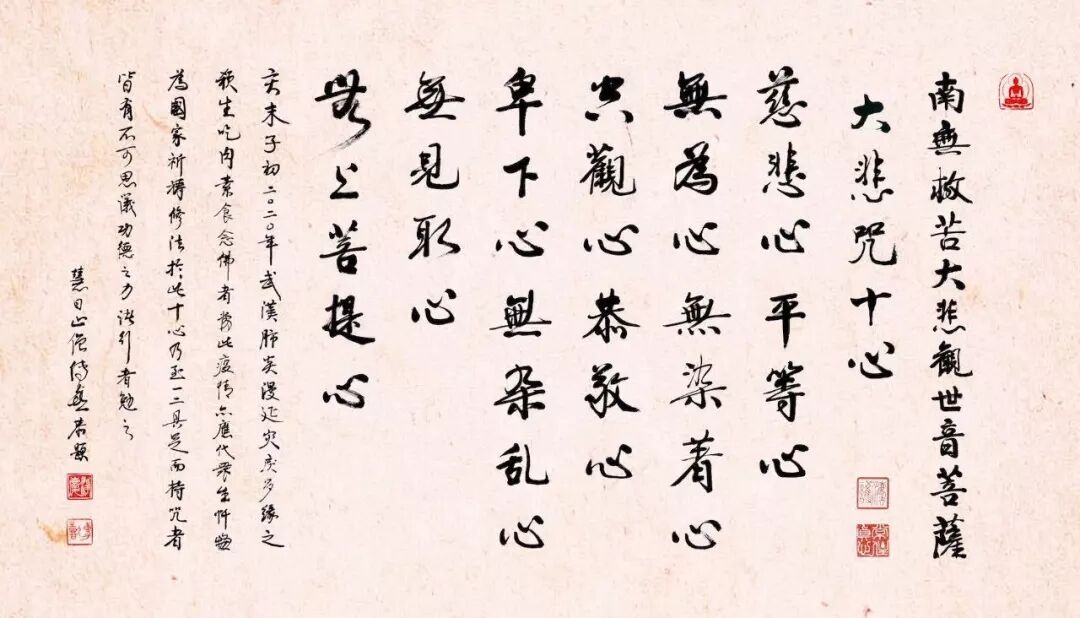 南無救苦大悲觀世音菩薩
大悲咒十心
慈悲心平等心
無為心無染着心
空觀心恭敬心
卑下心無杂乱心
無見取心
無上菩提心
亥末子初二〇二〇年武漢肺炎漫延灾疾多緣之
殺生吃肉素食念佛者為此疫情亦應代眾生忏悔
為國家祈禱修法於此十心乃至一二具足而持咒者
皆有不可思議功德之力 者勉之
慧日山僧傳喜恭题